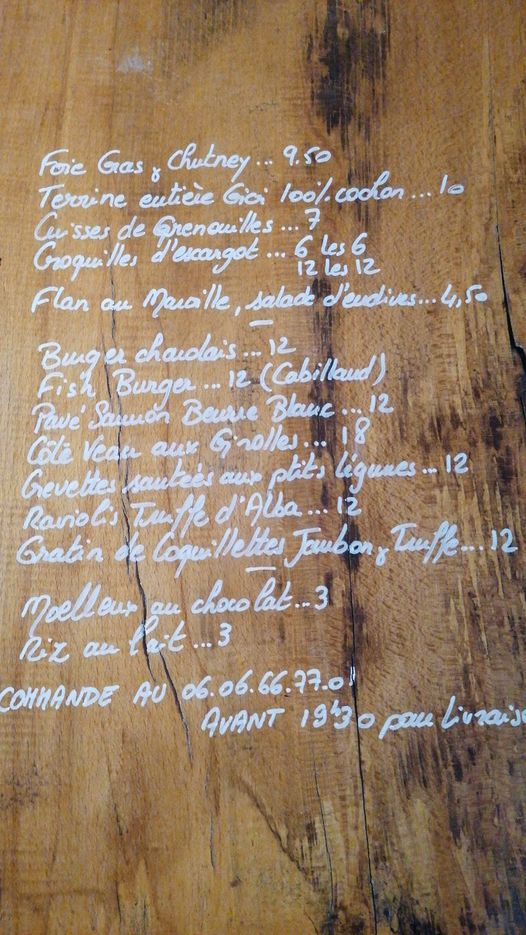 Foie Gras & Chutney ... 9.50
Terrine entière Gigi 100% cochon ... 10
Cuisses de Grenouilles ... 7
Croquilles d'escargot ... 6 les 6
12 les 12
Flan au Maroille, salade d'endives ... 4,50
Burger charolais ... 12
Fish Burger ... 12 (Cabillaud)
Pavé Saumon Beurre Blanc ... 12
Côte Veau aux Girolles ... 18
Crevettes sautées aux ptits légumes ... 12
Raviolis Truffe d'Alba ... 12
Gratin de Coquillettes Jambon & Truffe ... 12
Moelleux au chocolat ... 3
Riz au lait ... 3
COMMANDE AU 06.06.66.77.0
AVANT 19h30 pour Livraiso